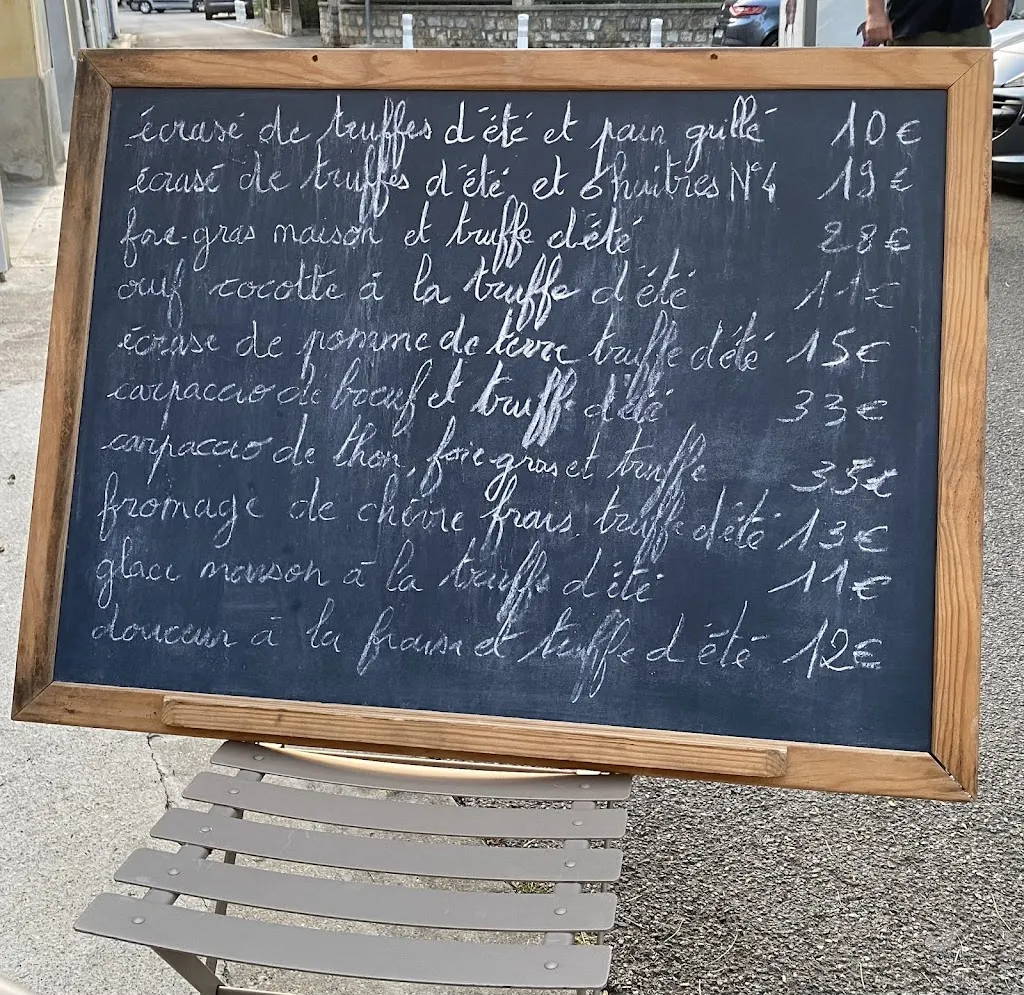 écrasé de truffes d'été et pain grillé 10€
écrasé de truffes d'été et 6 huitres N°4 19€
foie-gras maison et truffe d'été 28€
œuf cocotte à la truffe d'été 11€
écrasé de pomme de terre truffe d'été 15€
carpaccio de bœuf et truffe d'été 33€
carpaccio de thon, foie-gras et truffe 35€
fromage de chèvre frais, truffe d'été 13€
glace maison à la truffe d'été 11€
douceur à la fraise et truffe d'été 12€